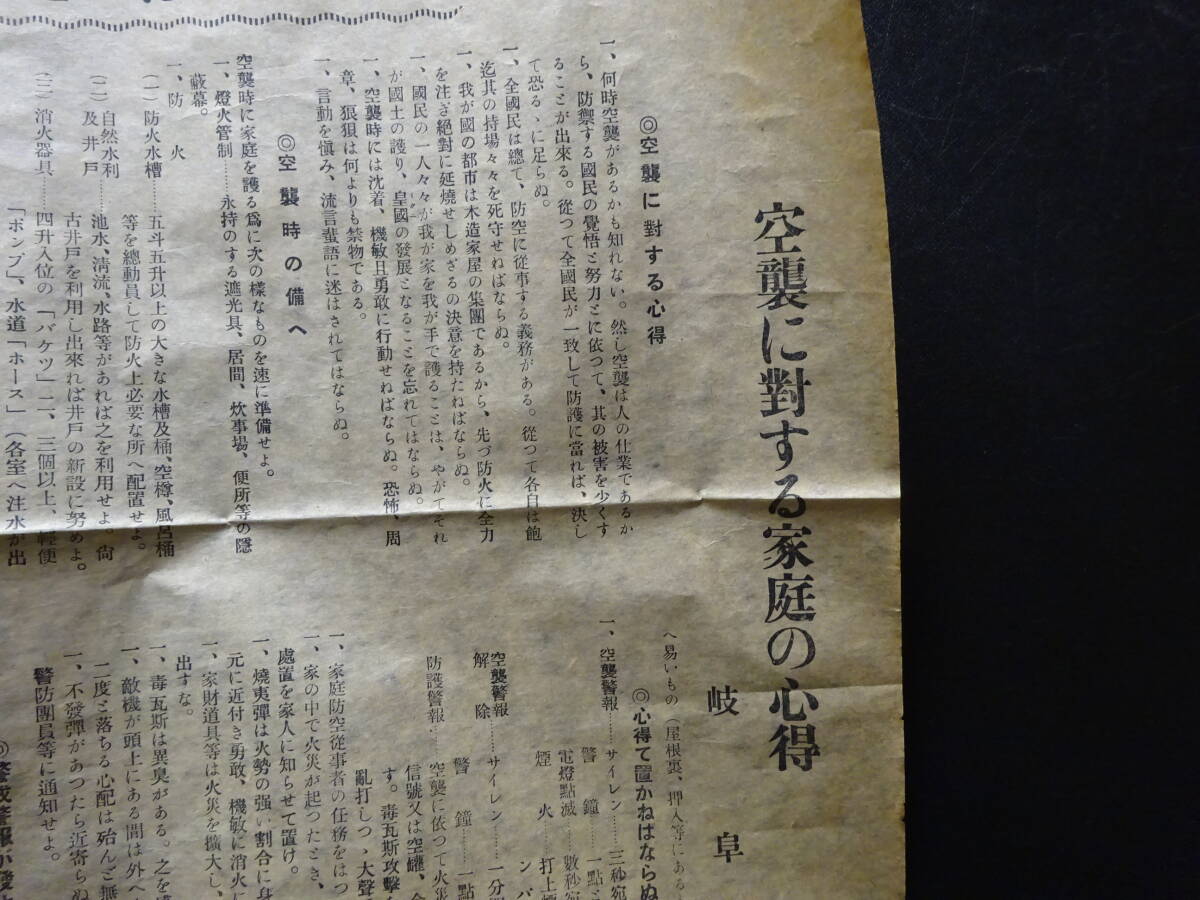 空襲に對する家庭の心得
岐阜
◎空襲に對する心得
一、何時空襲があるかも知れない。然し空襲は人の仕業であるか
ら、防禦する國民の覺悟と努力とに依つて、其の被害を少くす
ることが出來る。從つて全國民が一致して防護に當れば、決し
て恐るゝに足らぬ。
一、全國民は總て、防空に從事する義務がある。從つて各自は飽
迄其の持場々々を死守せねばならぬ。
一、我が國の都市は木造家屋の集團であるから、先づ防火に全力
を注ぎ絕對に延燒せしめざるの決意を持たねばならぬ。
一、國民の一人々々が我が家を我が手で護ることは、やがてそれ
が國土の護り、皇國の發展となることを忘れてはならぬ。
一、空襲時には沈着、機敏且勇敢に行動せねばならぬ。恐怖、周
章、狼狽は何よりも禁物である。
一、言動を愼み、流言蜚語に迷はされてはならぬ。
◎空襲時の備へ
空襲時に家庭を護る爲に次の樣なものを速に準備せよ。
一、燈火管制……永持のする遮光具、居間、炊事場、便所等の隱
蔽幕。
一、防火
(一)防火水槽……五斗五升以上の大きな水槽及桶、空樽、風呂桶
等を總動員して防火上必要な所へ配置せよ。
(二)自然水利及井戸……池水、淸流、水路等があれば之を利用せよ。尙
古井戸を利用し出來れば井戸の新設に努めよ。
(三)消火器具……四升入位の「バケツ」二、三個以上、輕便
「ポンプ」、水道「ホース」(各室へ注水が出
へ易いもの(屋根裏、押入等にある
◎心得て置かねばならぬ
一、空襲警報……サイレン……三秒宛
警鐘……一點と
電燈點滅……數秒宛
煙火……打上煙
空襲警報解除……サイレン……一分
警鐘……一點
防護警報……空襲に依つて火災
信號又は空罐、金
す。毒瓦斯攻擊
亂打しつゝ大聲
一、家庭防空從事者の任務をはつ
一、家の中で火災が起つたとき、
處置を家人に知らせて置け。
一、燒夷彈は火勢の强い割合に身
元に近付き勇敢、機敏に消火に
一、家財道具等は火災を擴大し、
出すな。
一、毒瓦斯は異臭がある。之を
一、敵機が頭上にある間は外へ
二度と落ちる心配は殆んど無
一、不發彈があつたら近寄らぬ
警防團員等に通知せよ。
◎警戒警報が發